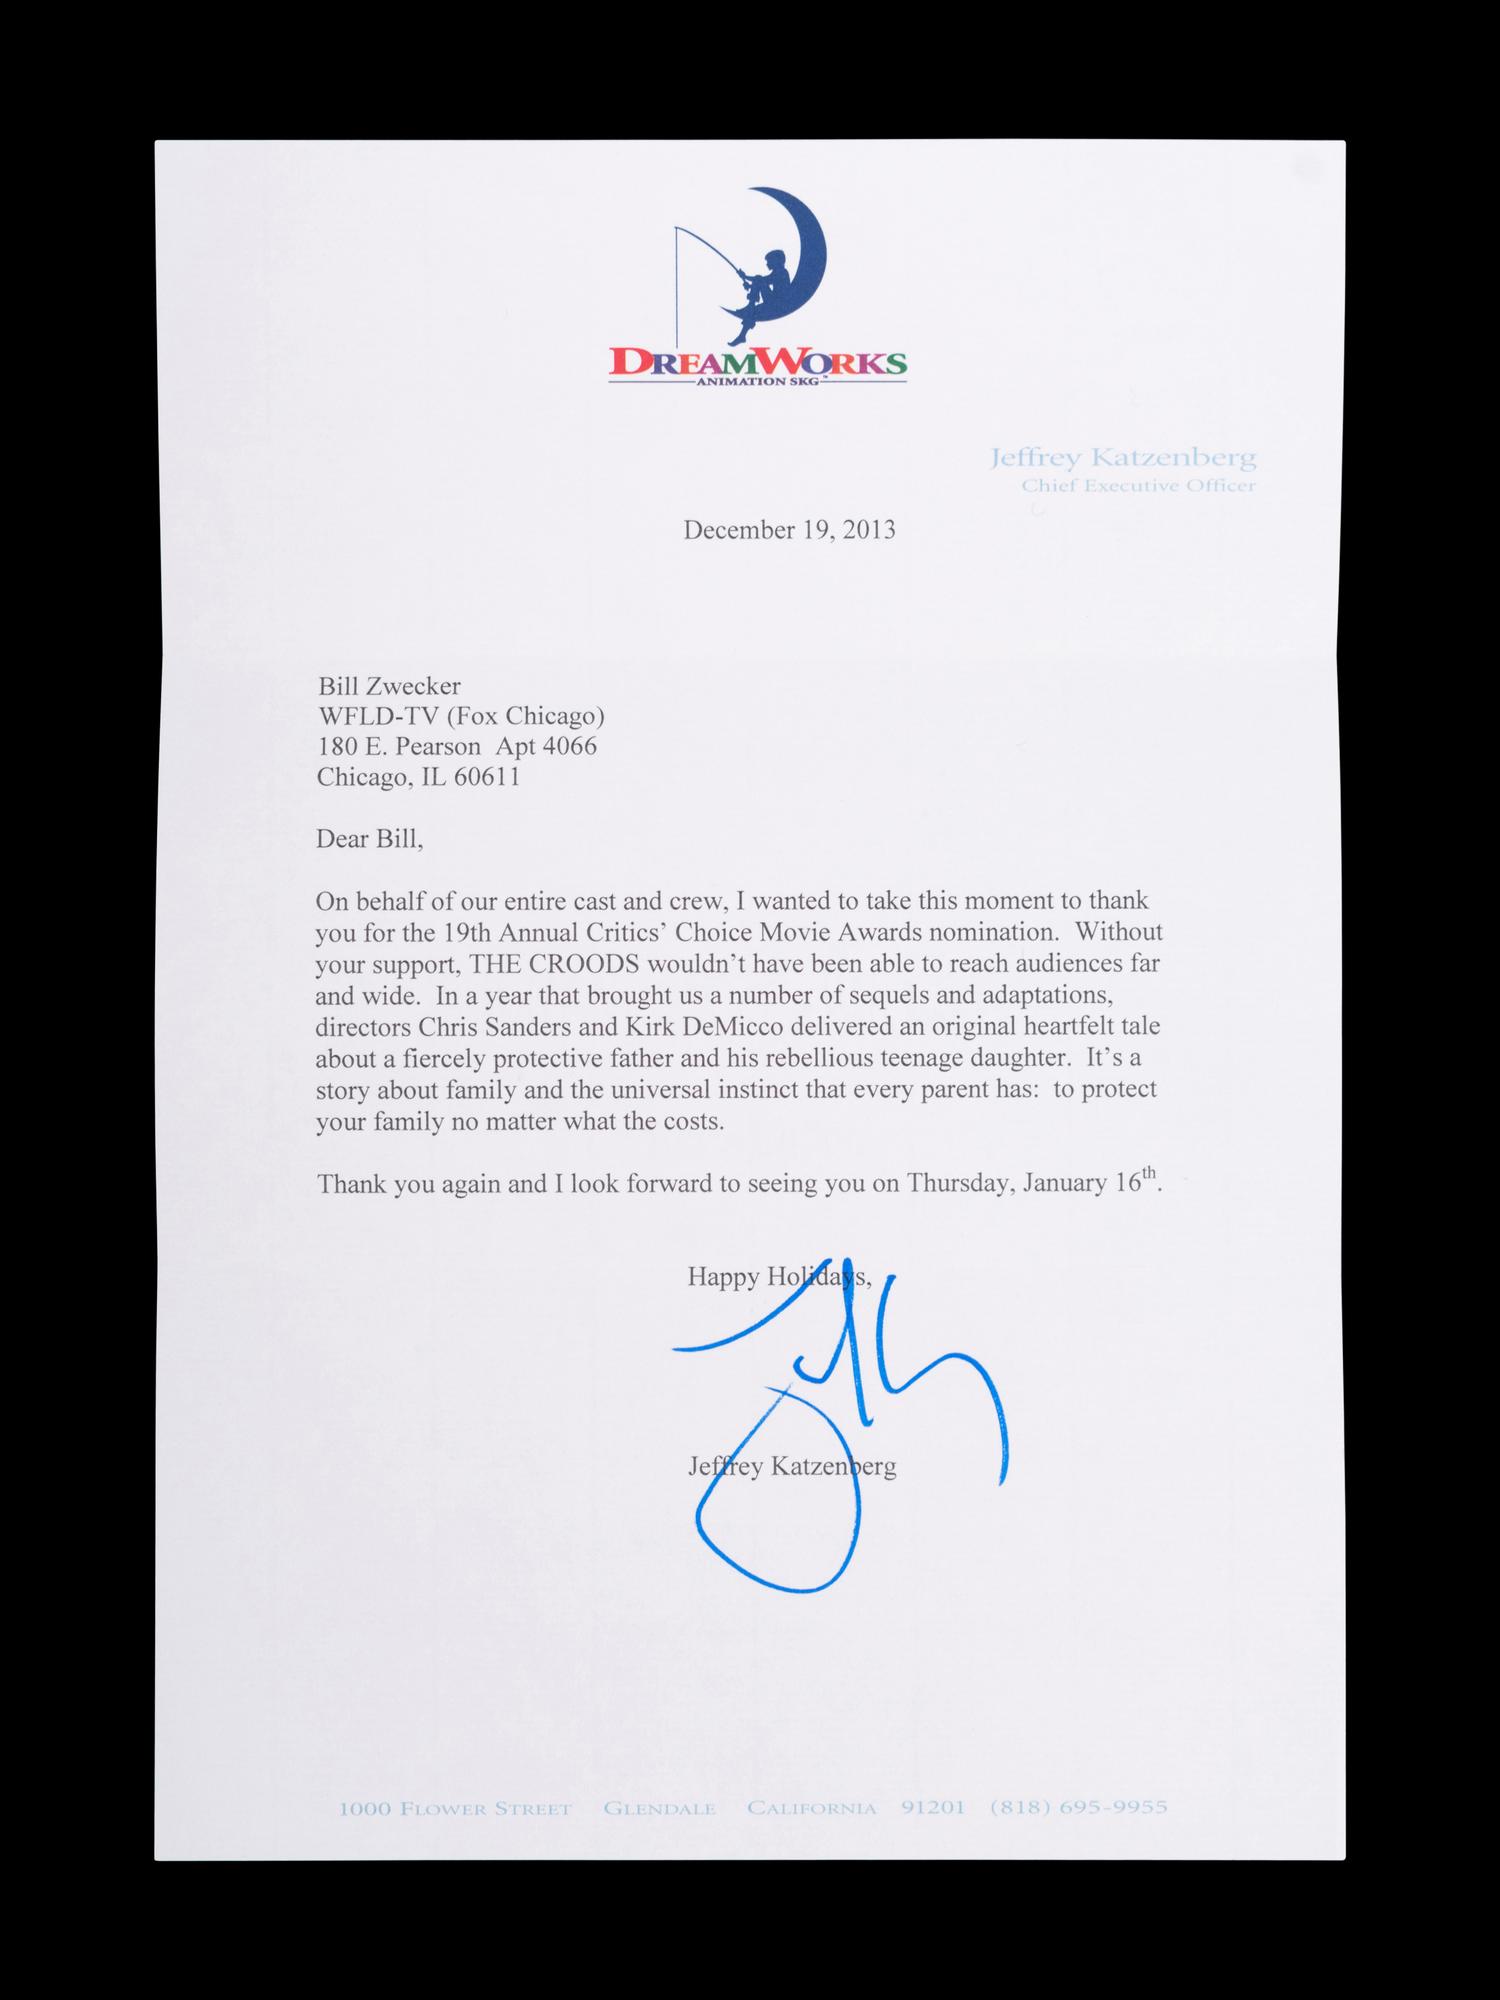 DREAMWORKS
ANIMATION SKG™
Jeffrey Katzenberg
Chief Executive Officer
December 19, 2013
Bill Zwecker
WFLD-TV (Fox Chicago)
180 E. Pearson  Apt 4066
Chicago, IL 60611
Dear Bill,
On behalf of our entire cast and crew, I wanted to take this moment to thank
you for the 19th Annual Critics’ Choice Movie Awards nomination.  Without
your support, THE CROODS wouldn’t have been able to reach audiences far
and wide.  In a year that brought us a number of sequels and adaptations,
directors Chris Sanders and Kirk DeMicco delivered an original heartfelt tale
about a fiercely protective father and his rebellious teenage daughter.  It’s a
story about family and the universal instinct that every parent has:  to protect
your family no matter what the costs.
Thank you again and I look forward to seeing you on Thursday, January 16th.
Happy Holidays,
Jeffrey Katzenberg
1000 FLOWER STREET   GLENDALE   CALIFORNIA   91201   (818) 695-9955